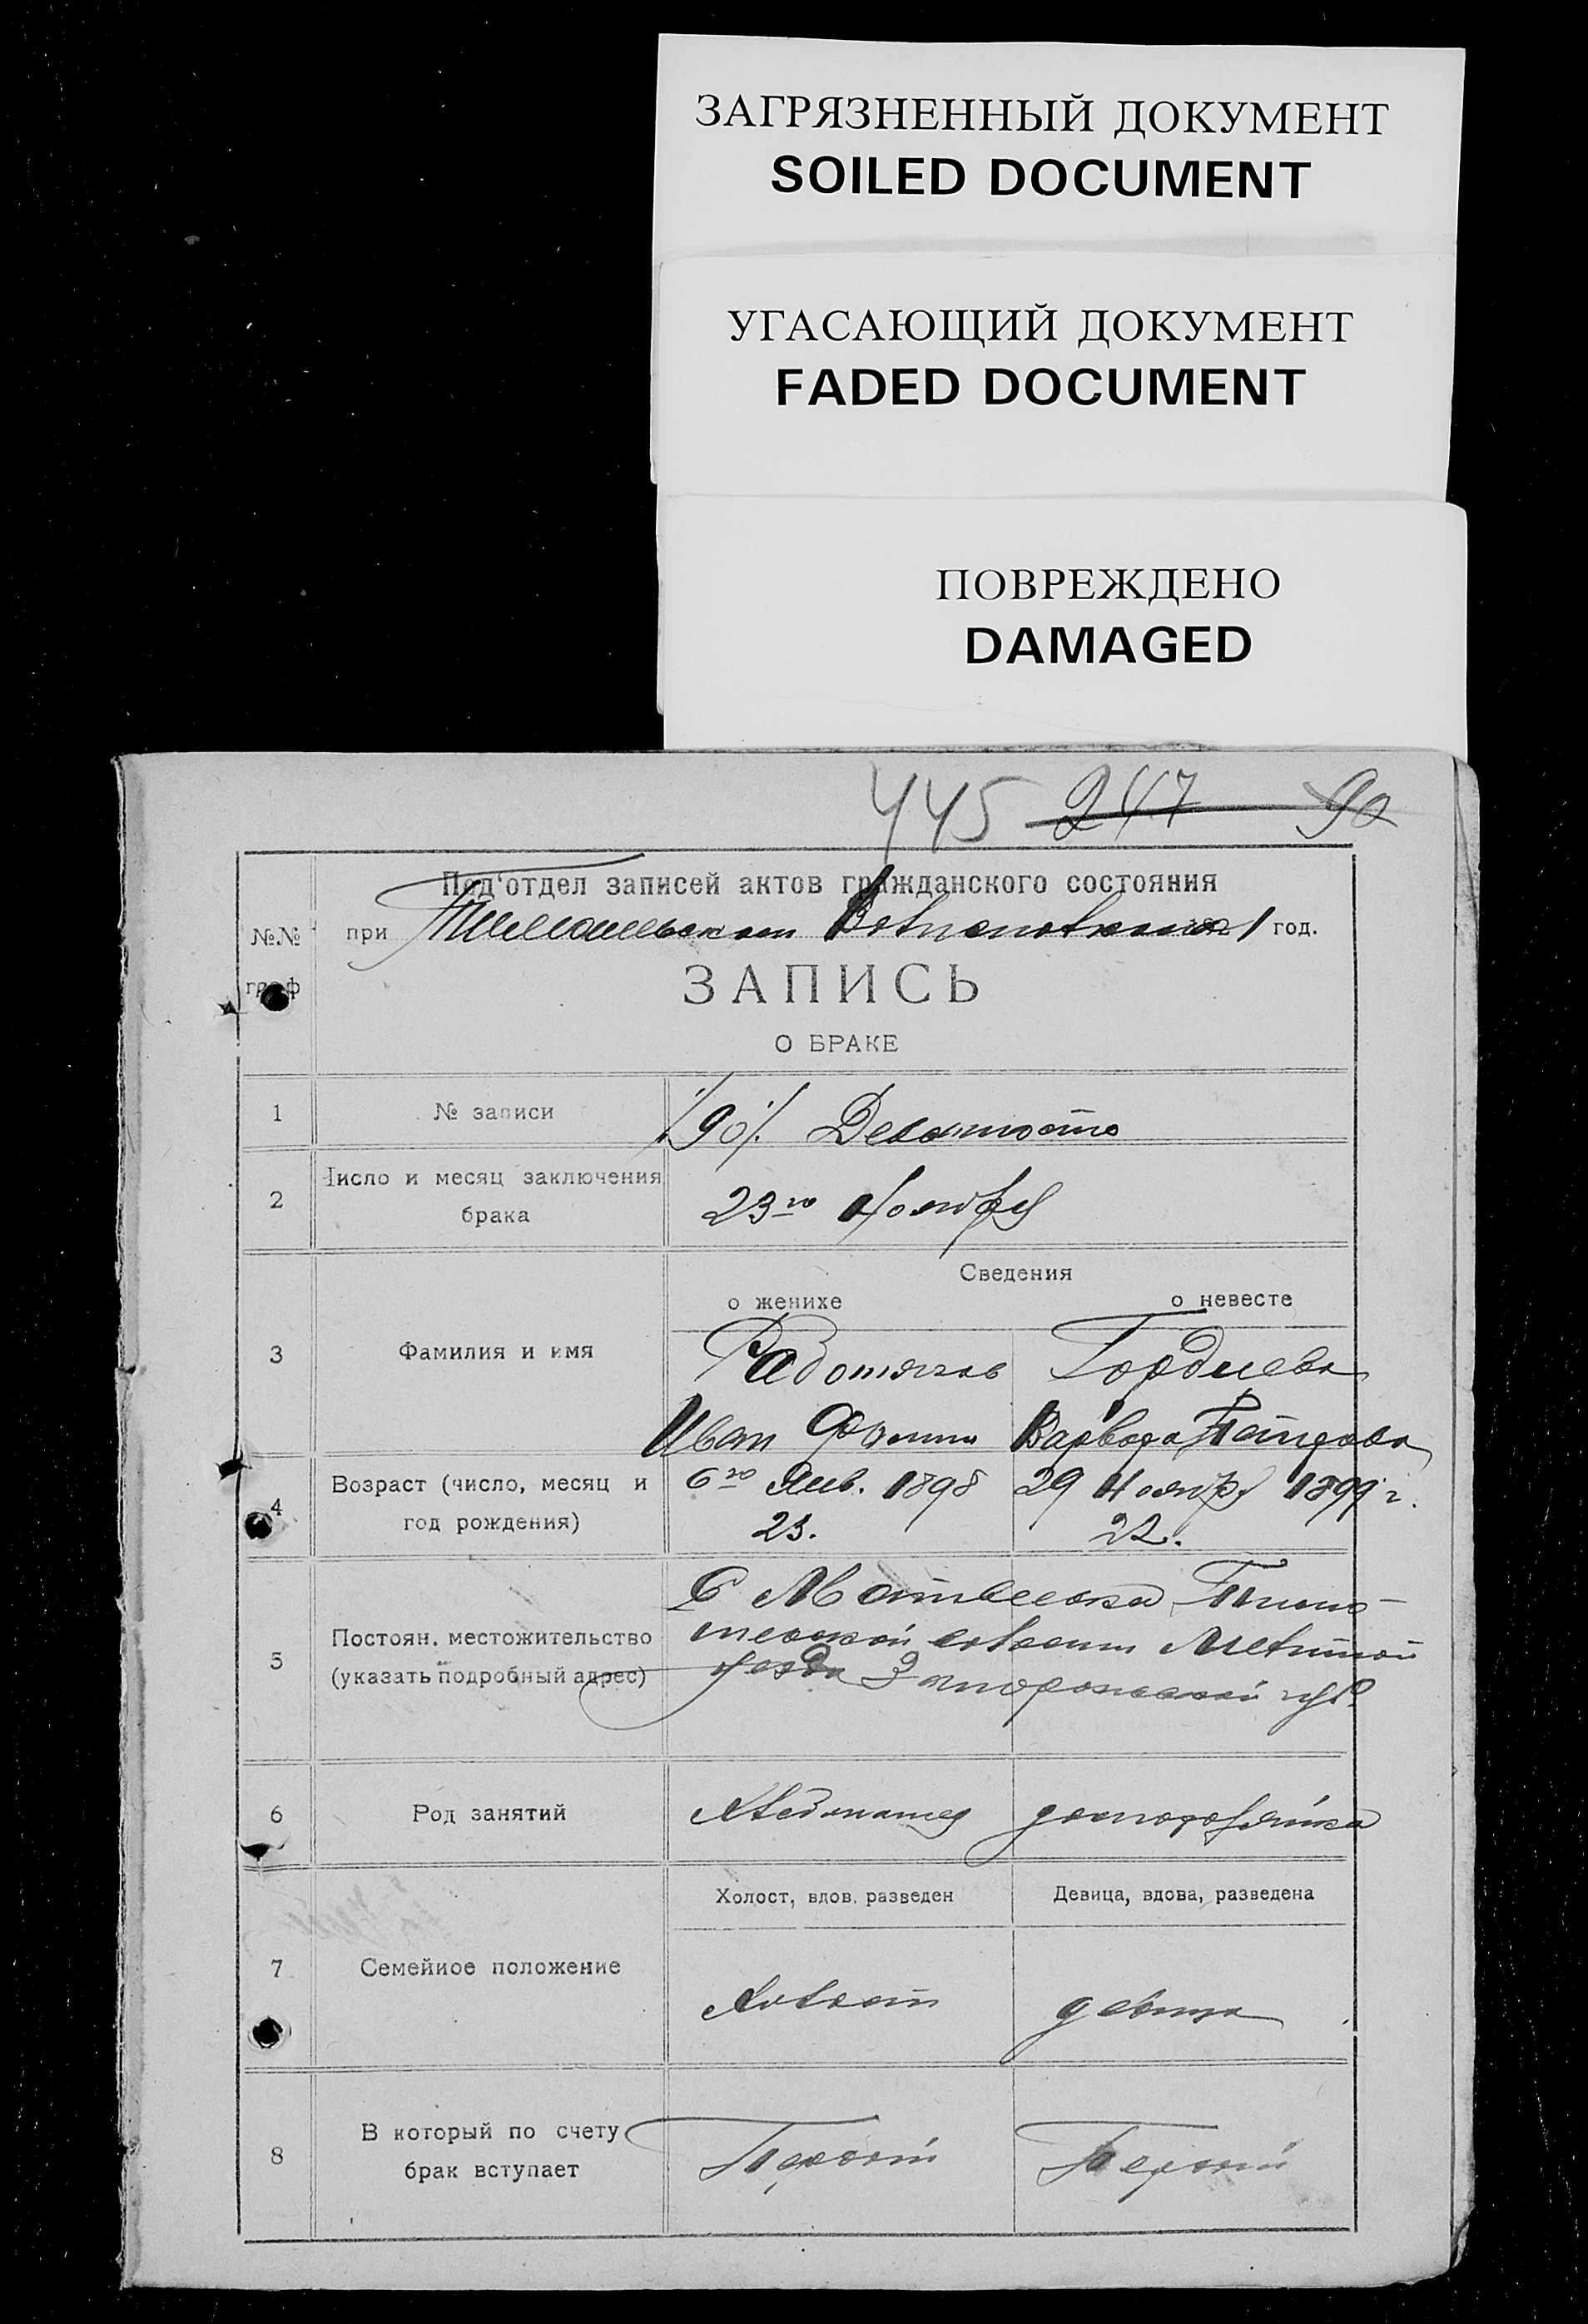 ЗАГРЯЗНЕННЫЙ ДОКУМЕНТ
SOILED DOCUMENT
УГАСАЮЩИЙ ДОКУМЕНТ
FADED DOCUMENT
ПОВРЕЖДЕНО
DAMAGED
445 247 90
Под'отдел записей актов гражданского состояния
№№ при 192 1 год.
граф
ЗАПИСЬ
О БРАКЕ
1 № записи 90
2 Число и месяц заключения
брака 23го Ноября
Сведения
о женихе о невесте
3 Фамилия и имя Гордиева
Иван Варвара
4 Возраст (число, месяц и год рождения) 6го Янв. 1898 29 Ноября 1899 г.
23. 22.
С Матвеевка
5 Постоян. местожительство волости
(указать подробный адрес) уезда Запорожской губ.
6 Род занятий Хлебопашец домохозяйка
Холост, вдов. разведен Девица, вдова, разведена
7 Семейное положение Холост девица
8 В который по счету
брак вступает Первый Первый